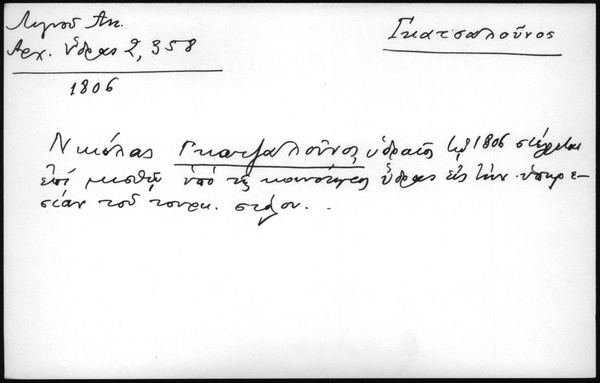 Λιγνοῦ Ἀν.
Ἀρχ. Ὕδρας 2, 358
1806
Γκατσαλοῦνος
Νικόλας Γκατζαλοῦνος ὑδραῖος τῷ 1806 στέλνεται
ἐπί μισθῷ ὑπό τῆς κοινότητος Ὕδρας εἰς τήν ὑπηρε-
σίαν τοῦ τουρκ. στόλου. . .